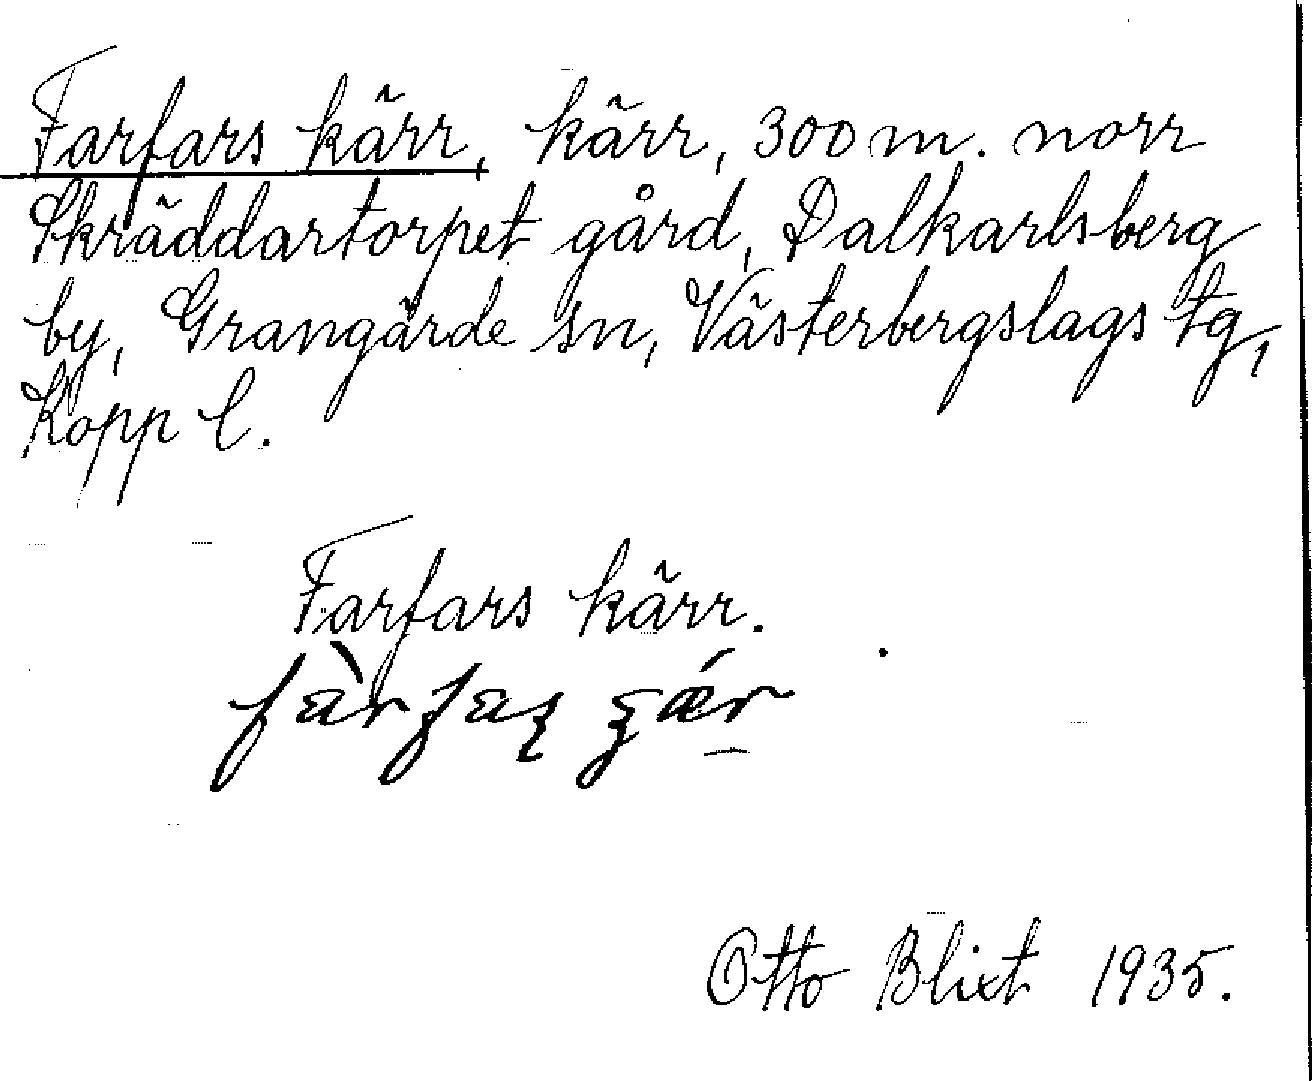 Farfars kärr, kärr, 300 m. norr
Skräddartorpet gård, Dalkarlsberg
by, Grangärde sn, Västerbergslags tg,
Kopp l.
Farfars kärr.
Otto Blixt 1935.